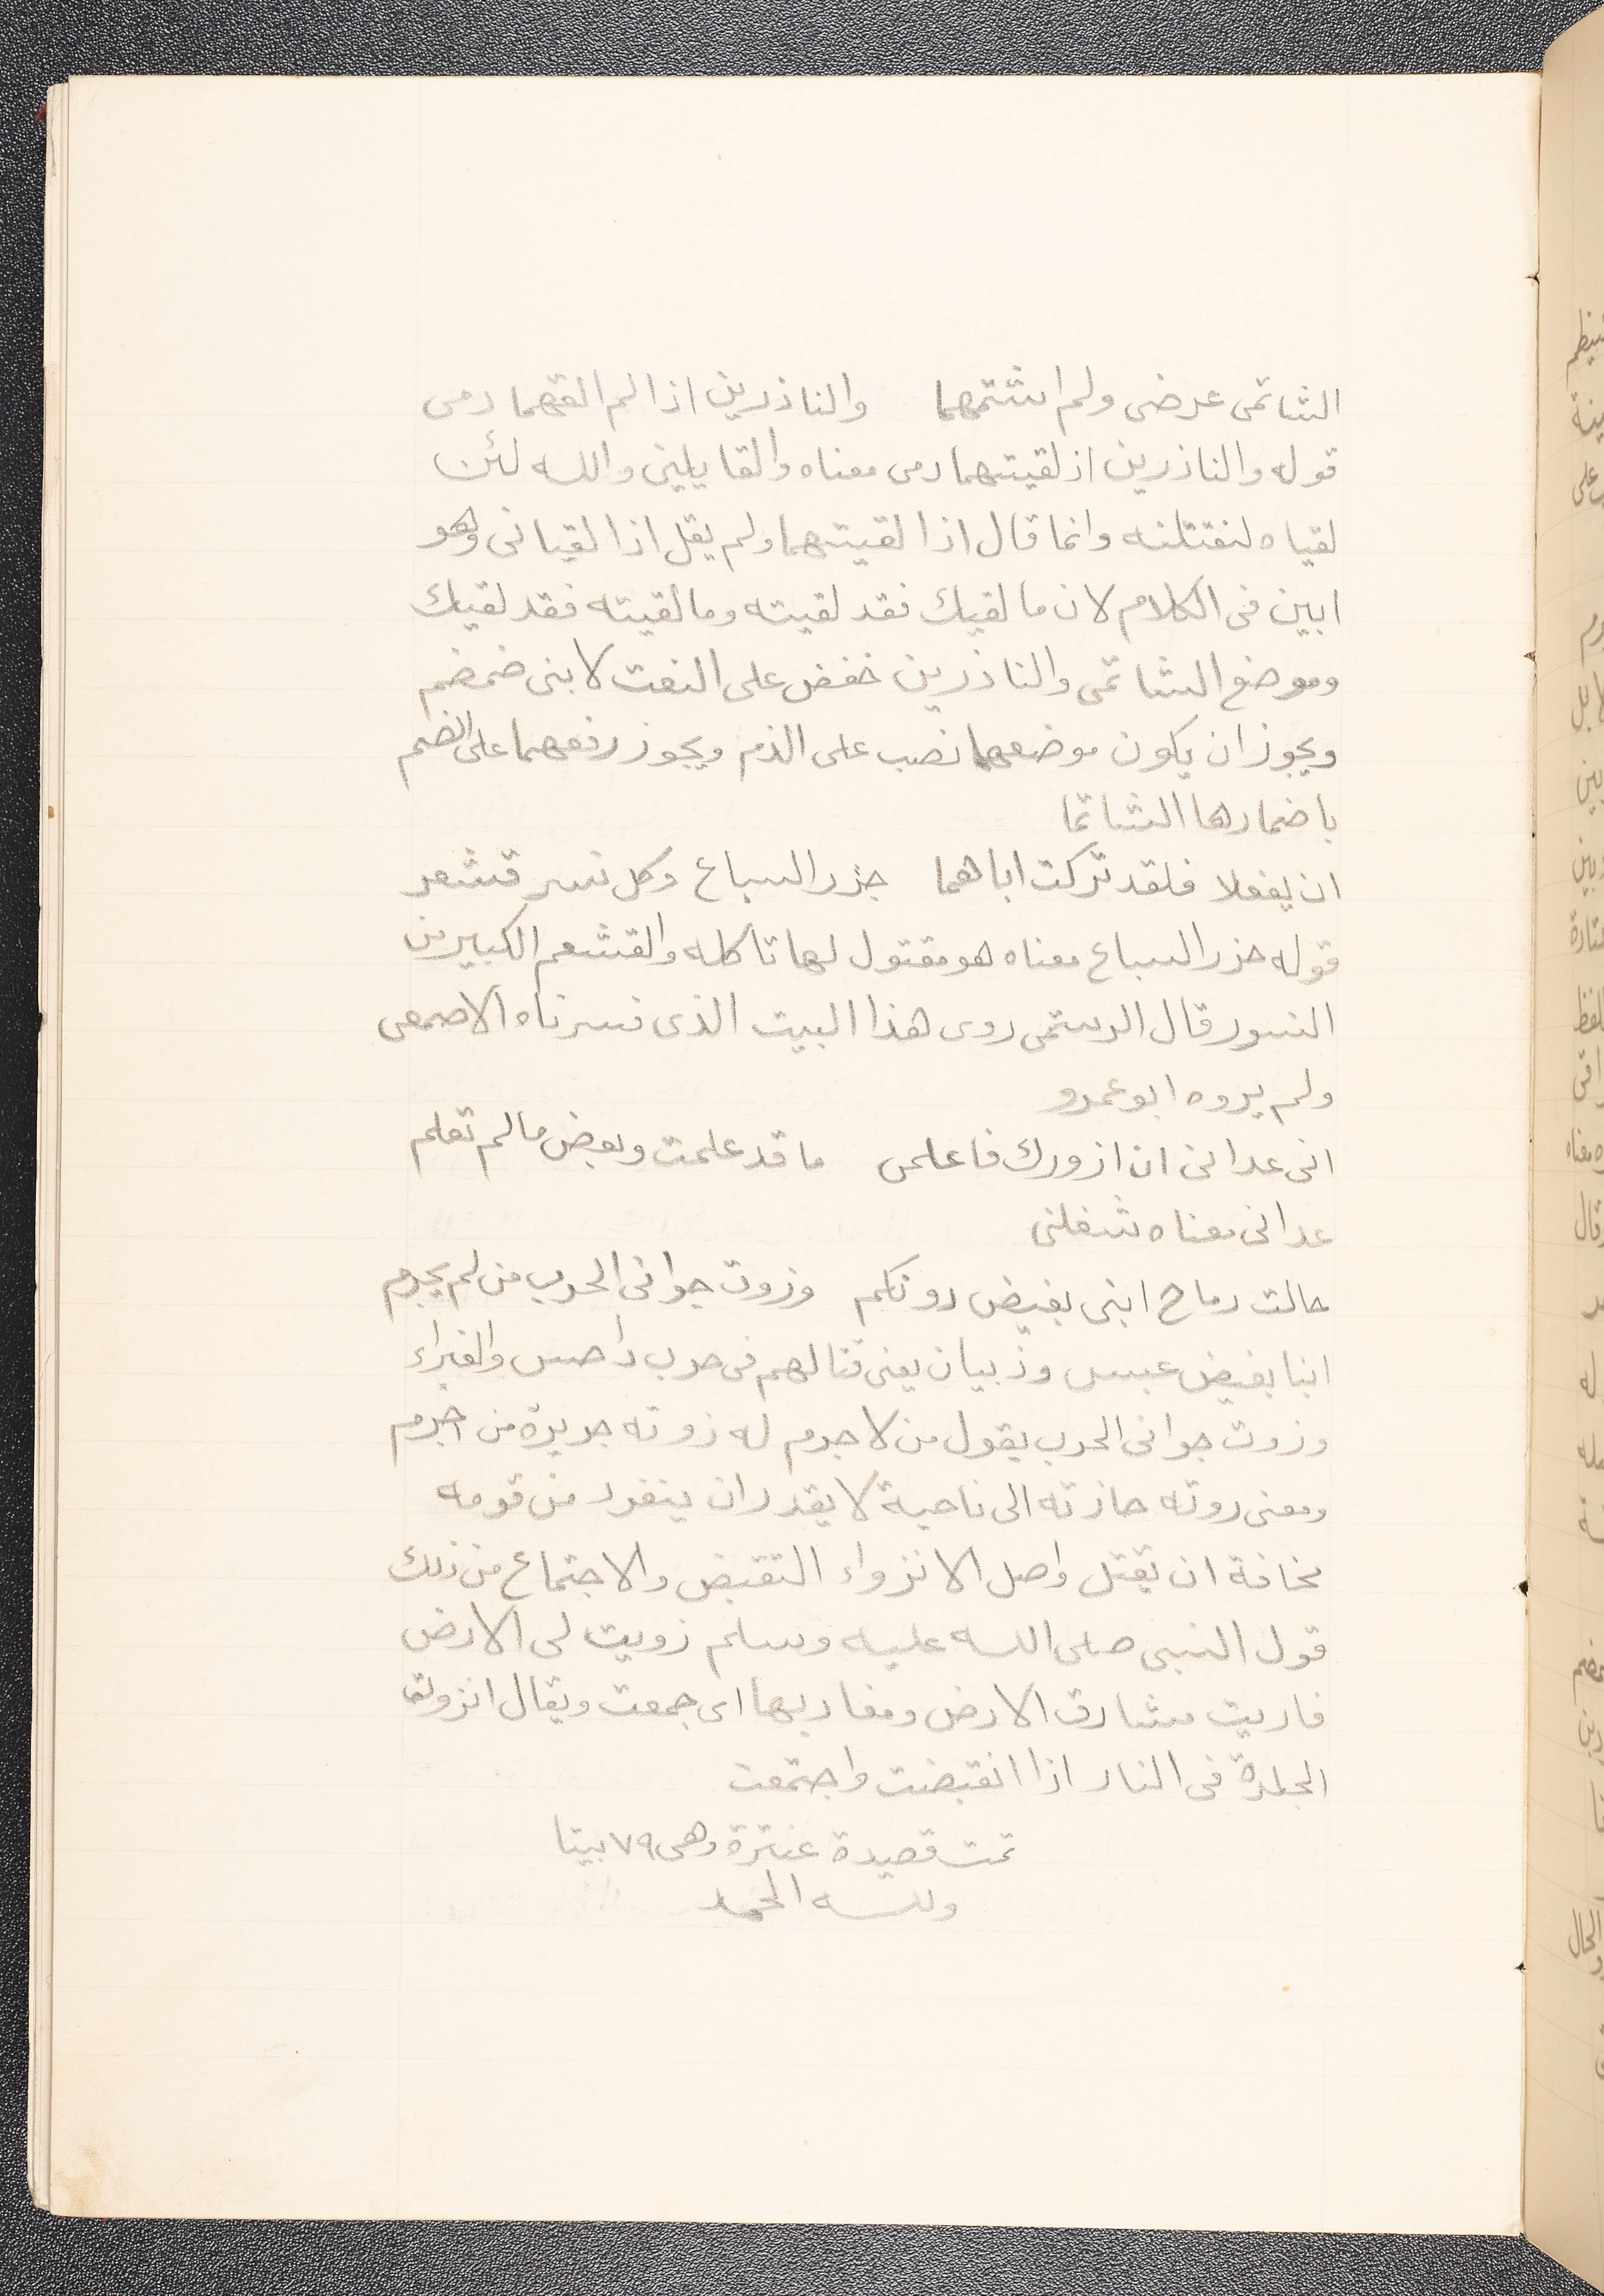 الشاتمى عرضى ولم اشتمهما والناذرين اذا لم القهما دمى
قوله والناذرين اذ لقيتهما دمى معناه والقايلين والله لئن
لقياه لنقتلنه وانما قال اذا لقيتهما ولم يقل اذا لقيانى وهو
ابين فى الكلام لان ما لقيك فقد لقيته وما لقيته فقد لقيك
وموضع الشاتمى والناذرين خفض على النعت لابنى ضمضم
ويجوز ان يكون موضعهما نصب على الذم ويجوز رفعهما على الضم
باضمارها الشاتما
ان يفعلا فلقد تركت اباهما جزر السباع وكل نسر قشعر
قوله جزر السباع معناه هو مقتول لها تاكله والقشعم الكبير من
النسور قال الرستمى روى هذا البيت الذى فسرناه الاصمعى
ولم يروه ابو عمرو
انى عدانى ان ازورك فاعلمى ما قد علمت وبعض ما لم تعلم
عدانى معناه شغلنى
حالت رماح ابنى بغيض دونكم وزوت جوانى الحرب من لم يجرم
ابنا بغيض عبس وذبيان يعنى قتالهم فى حرب داحس والغبراء
وزوت جوانى الحرب يقول من لا جرم له زوته جريرة من اجرم
ومعنى زوته حازته الى ناحية لا يقدر ان ينفرد من قومه
مخافة ان يقتل واصل الانزواء التقبض والاجتماع من ذلك
قول النبى صلى الله عليه وسلم زويت لى الارض
فاريت مشارق الارض ومغاربها اى جمعت ويقال انزوت
الجلدة فى النار اذا انقبضت واجتمعت
تمت قصيدة عنترة وهى ٧٩ بيتا
ولله الحمد